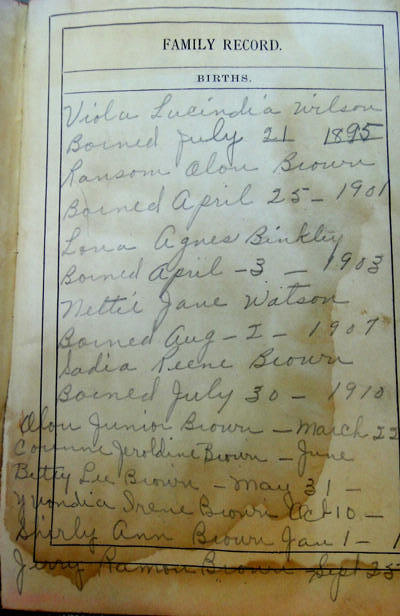 FAMILY RECORD.
BIRTHS.
Viola Lucindia Wilson
Borned July 21 1895
Ransom Olon Brown
Borned April 25 - 1901
Lona Agnes Binkley
Borned April - 3 - 1903
Nettie Jane Watson
Borned Aug - 2 - 1907
Sadia Reene Brown
Borned July 30 - 1910
Olon Junior Brown - March 22
Corinne Jeroldine Brown - June
Betty Lee Brown - May 31 -
Yvondia Irene Brown Oct 10 -
Shirly Ann Brown Jan 1 - 1
Jerry Ramon Brown Sept 25